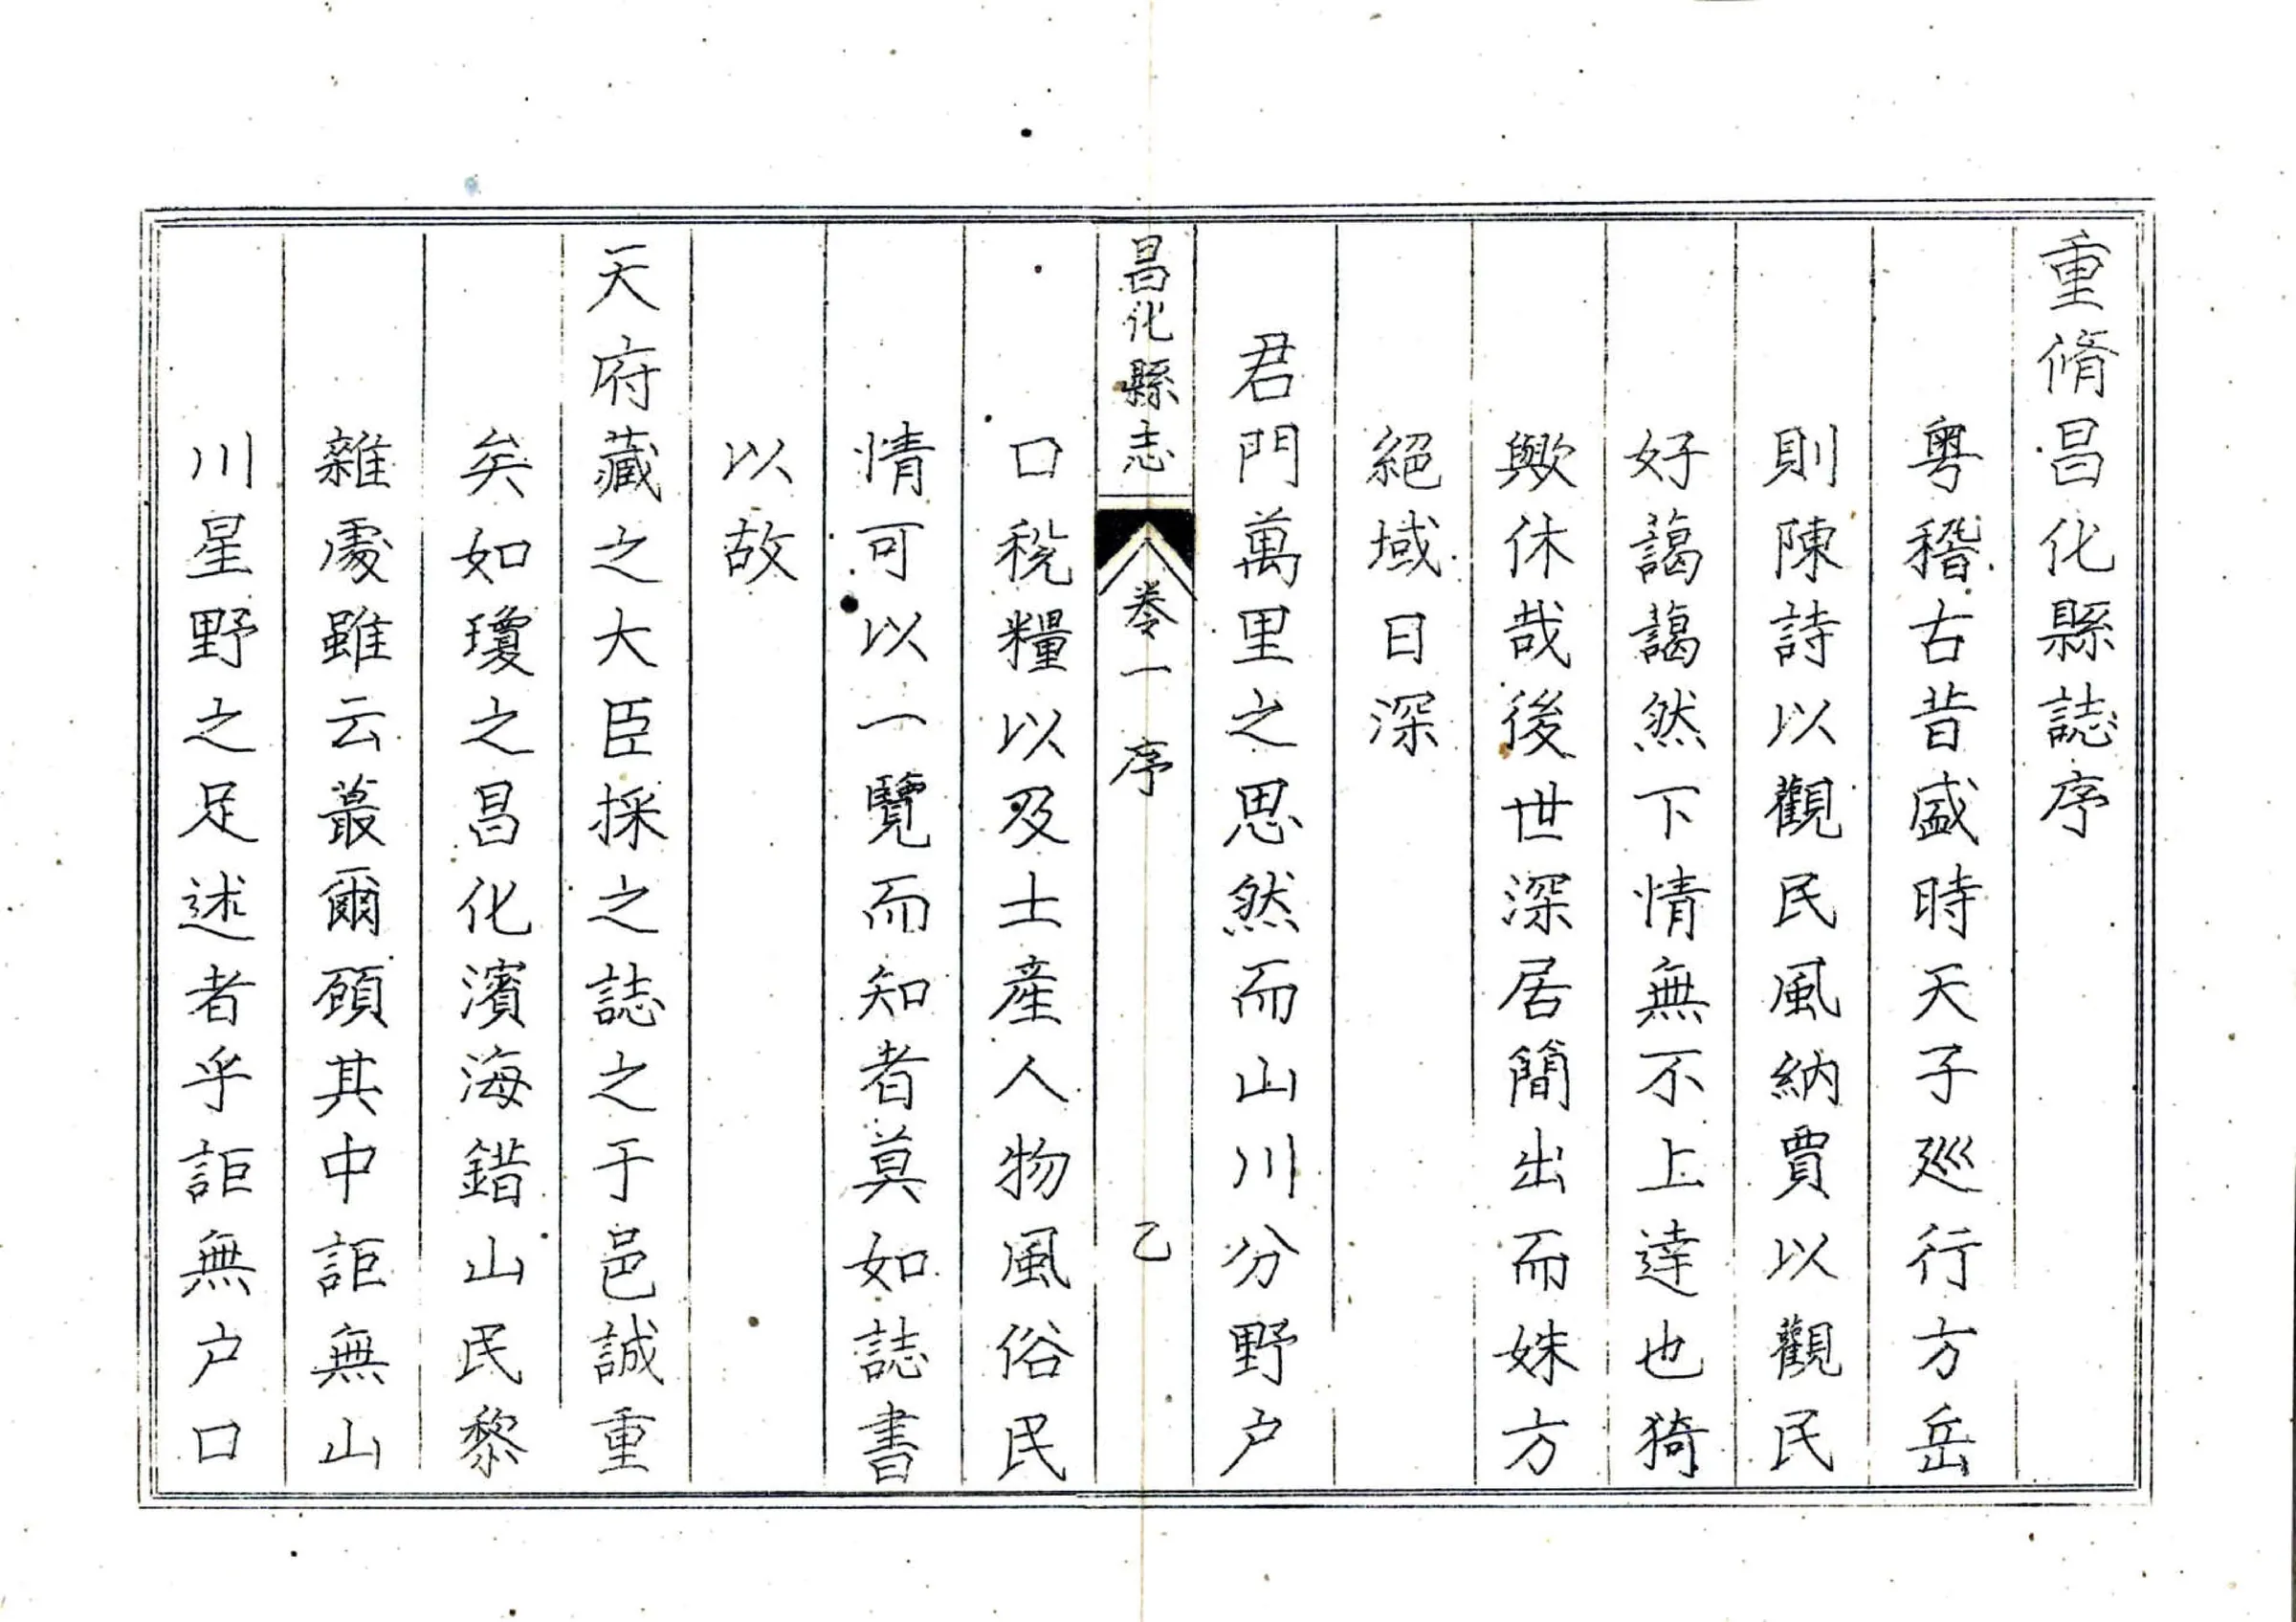 重脩昌化縣誌序
粤稽古昔盛時天子廵行方岳
則陳詩以觀民風納賈以觀民
好藹藹然下情無不上達也猗
歟休哉後世深居簡出而姝方
絕域日深
君門萬里之思然而山川分野户
昌化縣志 卷一 序 乙
口稅糧以及士產人物風俗民
情可以一覽而知者莫如誌書
以故
天府藏之大臣採之誌之于邑誠重
矣如瓊之昌化濱海錯山民黎
雜處雖云蕞爾頋其中詎無山
川星野之足述者乎詎無户口